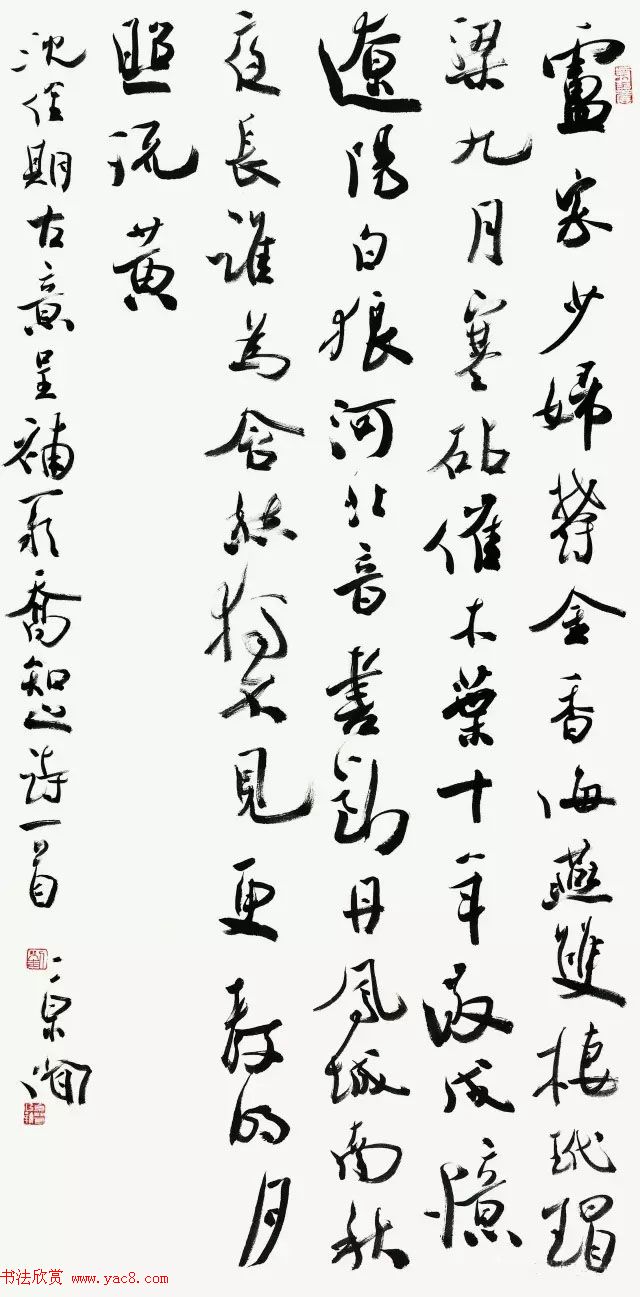 盧家少婦鬱金香海燕雙棲玳瑁
梁九月寒砧催木葉十年戍憶
遼陽白狼河北音書斷丹鳳城南秋
夜長誰為含愁獨不見更教明月
照流黃
沈佺期古意呈補闕喬知之詩一首
书法欣赏 www.yac8.com